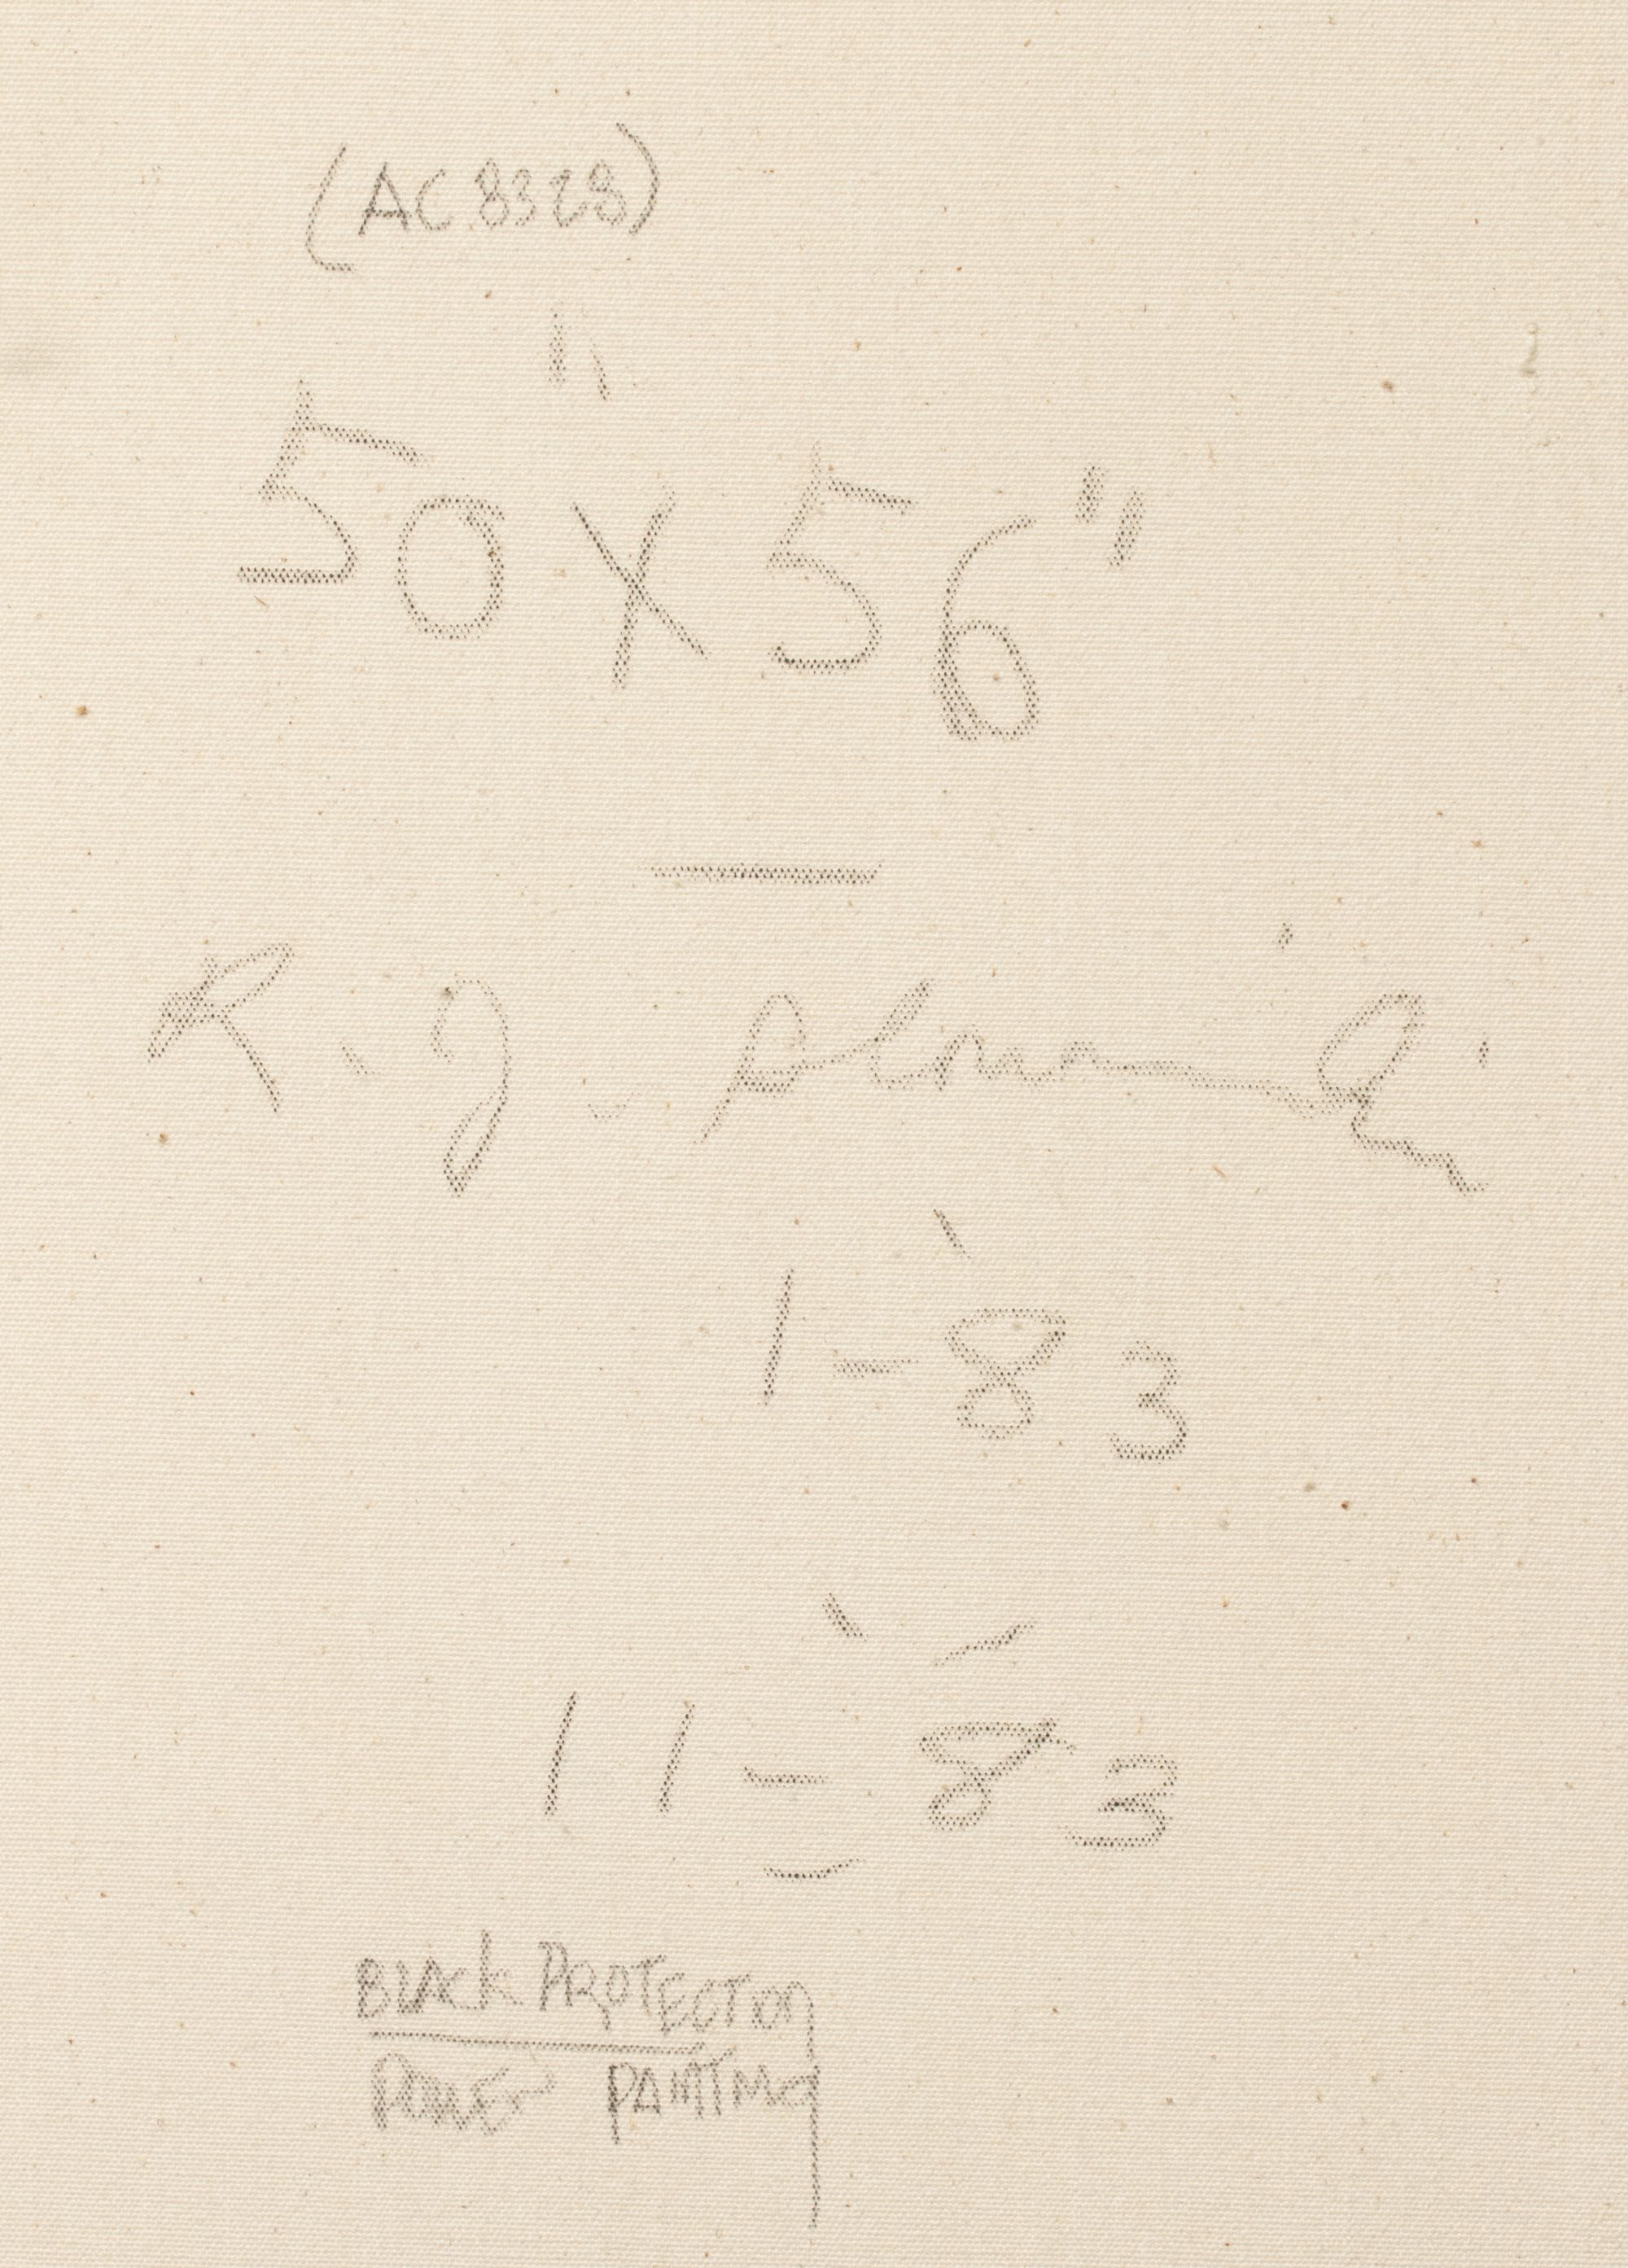 (AC 8328)
50" X 56"
1-83
11-83
BLACK PROTECTION
POWER PAINTING